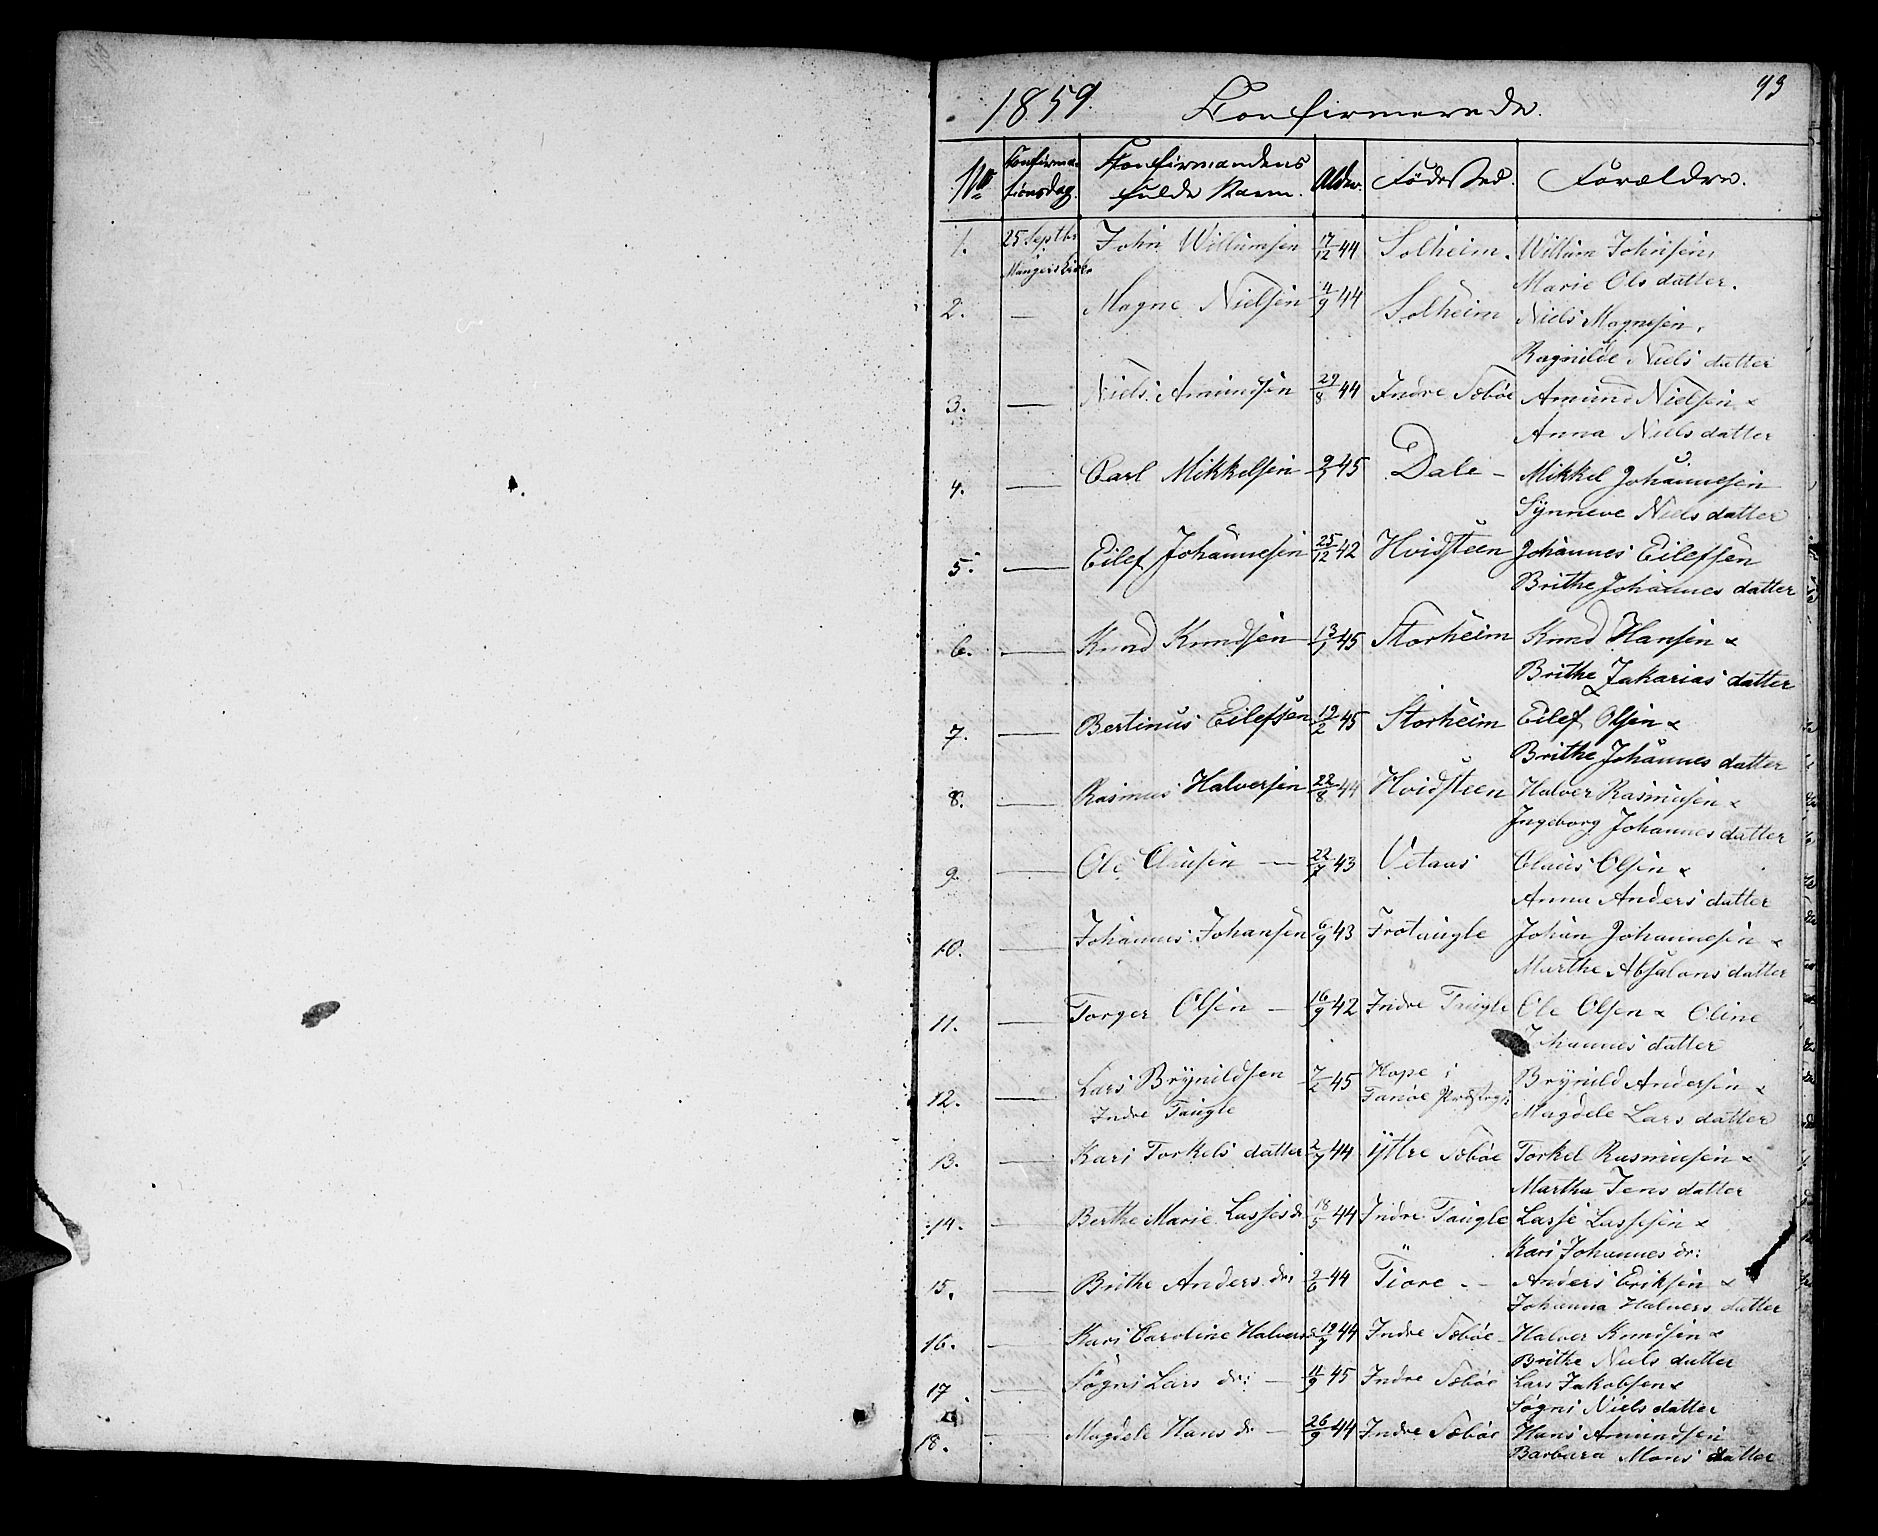 93
1859. Konfirmerede.
No Konfirma- Konfirmandens Alder. Fødested. Forældre.
tionsdag. fulde Navn.
1. 25 Septbr John Willumsen 17/12 44 Solheim. Willum Johnsen,
Mangers Kirke Marie Olsdatter.
2. — Magne Nielsen 11/9 44 Solheim Niels Magnesen,
Ragnilde Nielsdatter
3. — Niels Amundsen 29/8 44 Indre Sæbøe Amund Nielsen &
Anna Nielsdatter
4. — Carl Mikkelsen 45 Dale - Mikkel Johannesen
Synneve Nielsdatter
5. — Eilef Johannesen 25/12 42 Hvidsteen Johannes Eilefsen
Brithe Johannesdatter
6. — Knud Knudsen 45 Storheim Knud Hansen &
Brithe Zakariasdatter
7. — Bertinus Eilefsen 19/2 45 Storheim Eilef Olsen &
Brithe Johannesdatter
8. — Rasmus Halversen 22/8 44 Hvidsteen Halver Rasmusen &
Ingeborg Johannesdatter
9. — Ole Clausen — 22/7 43 Vetaas Claus Olsen &
Anna Andersdatter
10. — Johannes Johansen 6/9 43 Frotaugle Johan Johannesen &
Marthe Absalonsdatter
11. — Torger Olsen — 16/9 42 Indre Taugle Ole Olsen & Oline
Johannesdatter
12. — Lars Brynildsen 7/2 45 Hope i Brynild Andersen &
Indre Taugle Fanøe Magdele Larsdatter
13. — Kari Torkelsdatter 2/7 44 Yttre Sæbøe Torkel Rasmusen &
Martha Jensdatter
14. — Berthe Marie Lassesdr 18/5 44 Indre Taugle Lasse Lassesen &
Kari Johannesdr:
15. — Brithe Andersdr: 9/6 44 Tiore - Anders Eriksen &
Johanna Halversdatter
16. — Kari Caroline Halvers 19/7 44 Indre Sæbøe - Halver Knudsen &
Brithe Nielsdatter
17 — Søgni Larsdr: — 11/9 45 Indre Sæbøe Lars Jakobsen &
Søgni Nielsdatter
18. — Magdele Hansdr — 26/9 44 Indre Sæbøe Hans Amundsen
Barbara Monsdatter